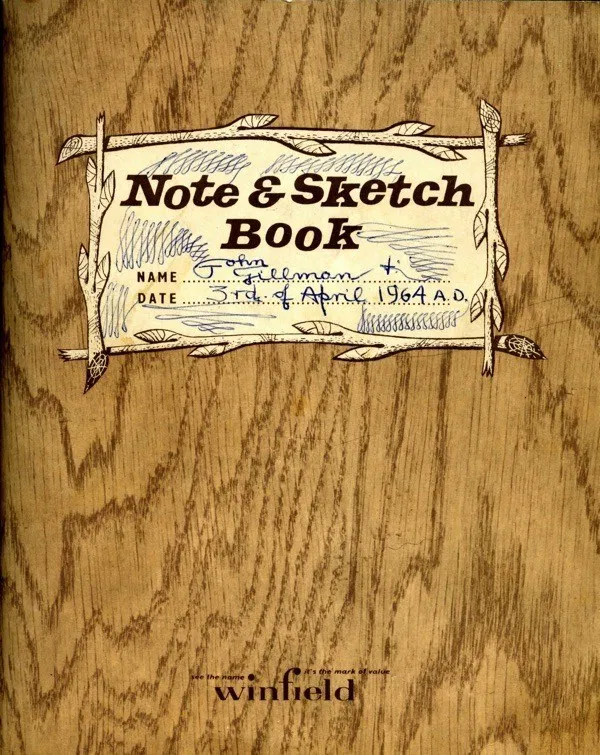 Note & Sketch
Book
John
NAME Gillman
DATE 3rd of April 1964 A.D.
see the name it's the mark of value
winfield